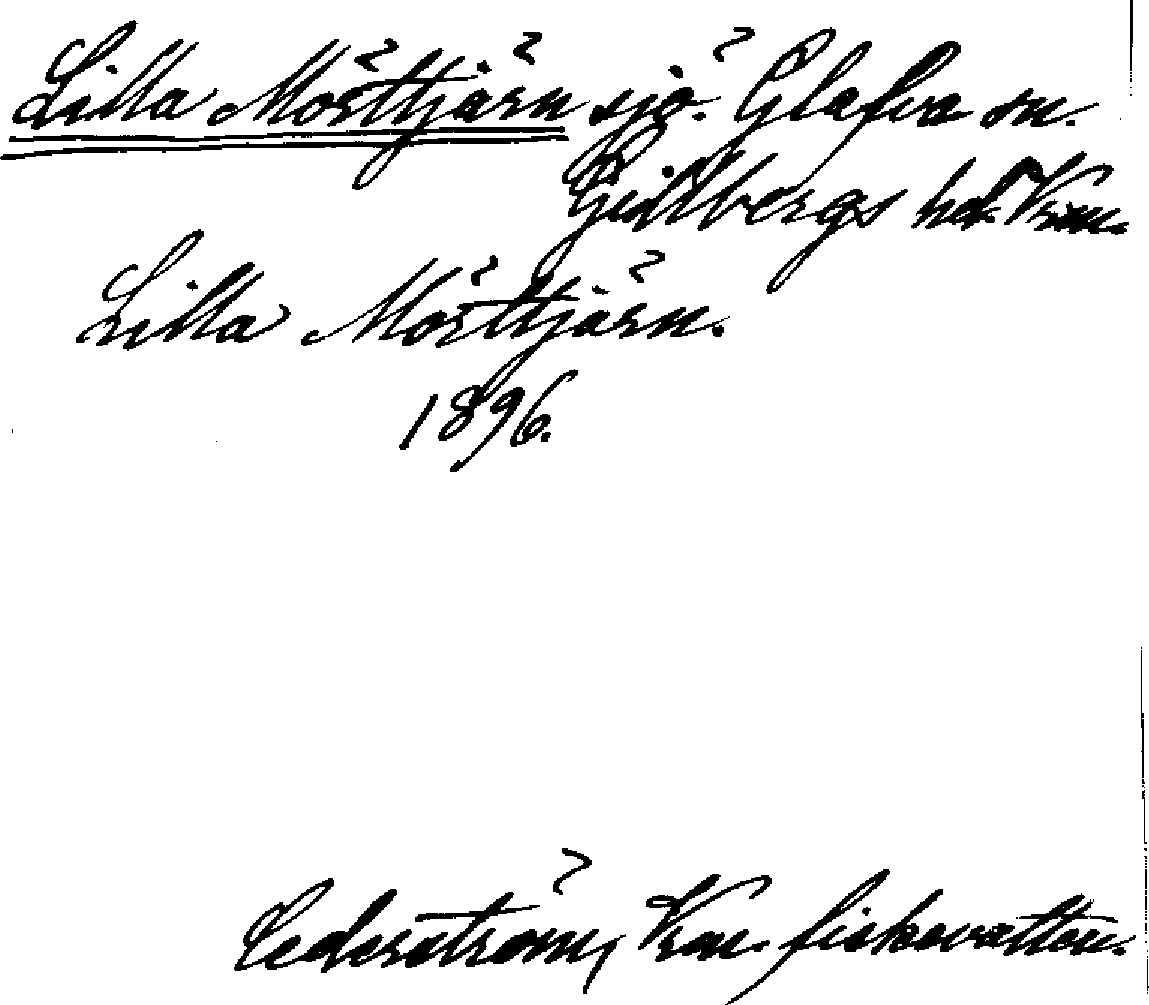 Lilla Mörttjärn sjö. Glafva sn.
Gillbergs hd. Vrm.
Lilla Mörttjärn.
1896.
Cederström, Vrm. fiskevatten.